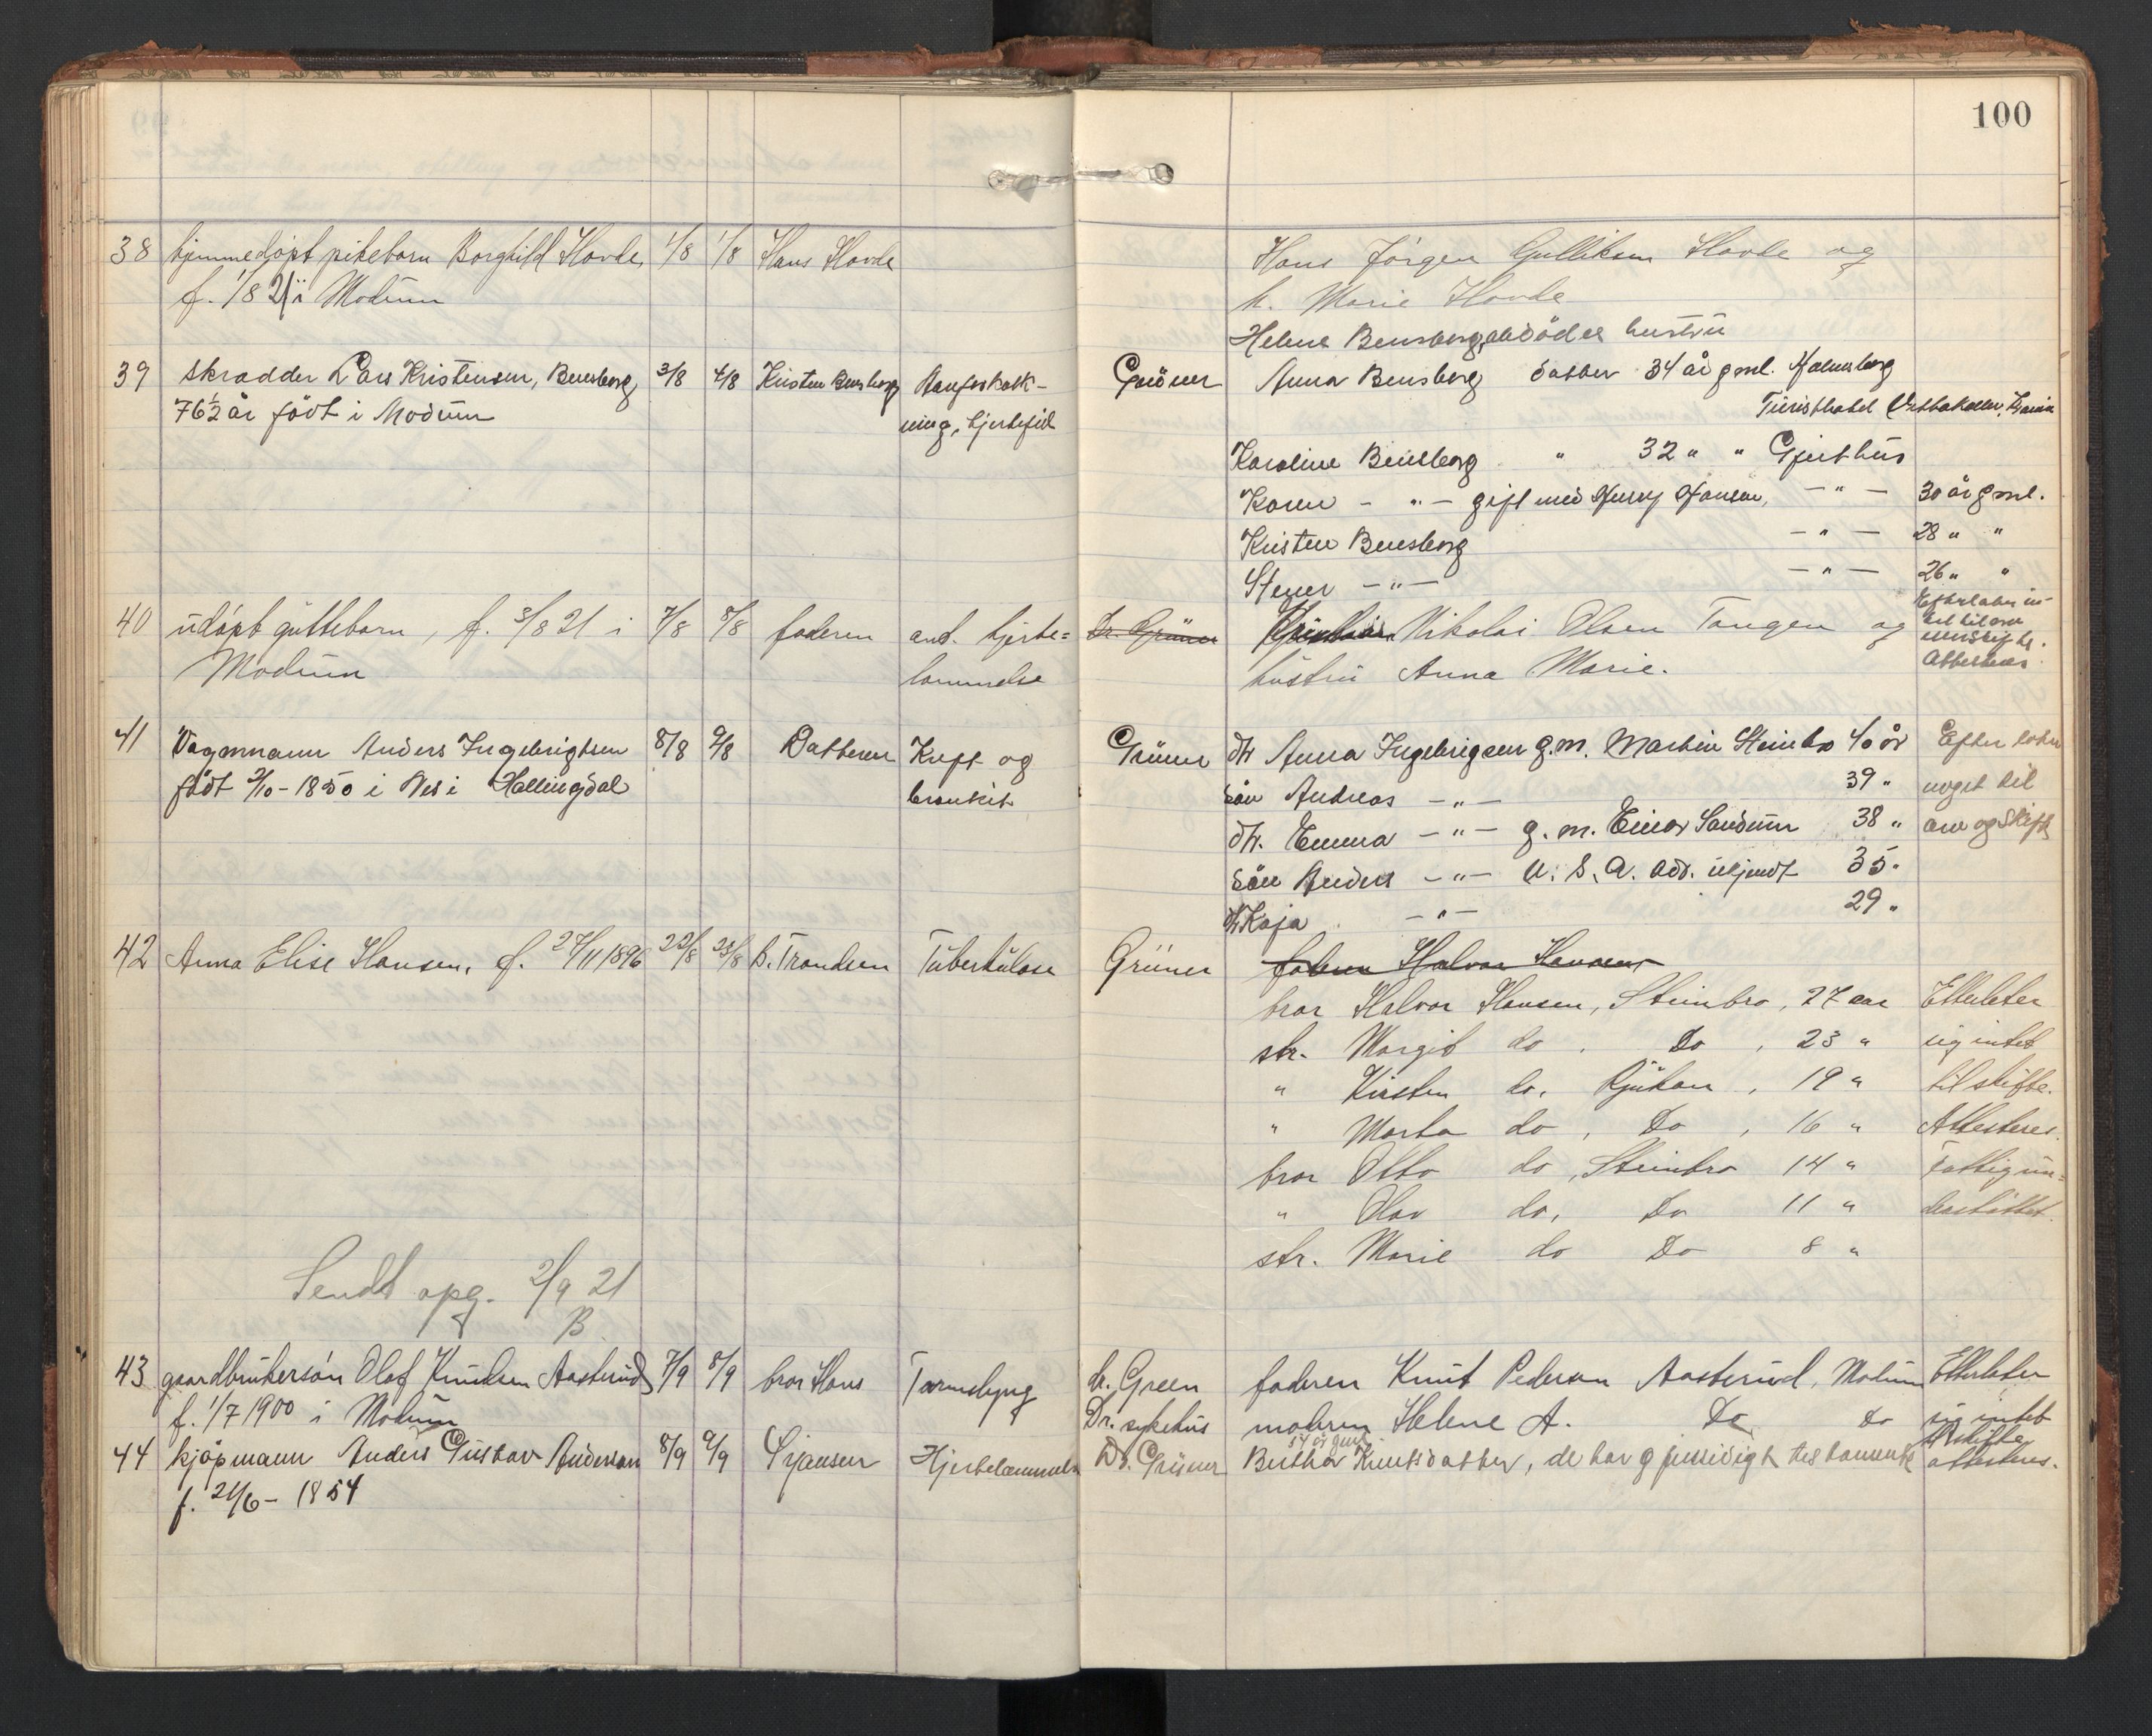 100
38 hjemmedøpt pikebarn Borghild Hovde, 1/8 1/8 Hans Hovde
f. 1/8 21 i Modum
Hans Jörgen Gulliksen Hovde og
h. Marie Hovde
Helene Bensberg, avdödes hustru
39 skradder Lars Kristensen, Bensberg, 3/8 4/8 Kristen Bensberg Aareforkalk-
76½ år födt i Modum
ning, hjertefeil
Grüner Anna Bensberg datter 34 år gml.
Turisthotel
Karoline Bensberg " 32 " " Gjethus
Karen - " - gift med Henry Hansen, - " - 30 år gml.
Kristen Bensberg - " - 28 " "
Stener - " - - " - 26 " "
40 udöpt guttebarn, f. 3/8 21 i 7/8 8/8 faderen ant. hjerte=
Modum
lammelse
Dr. Grüner Nikolai Olsen Tangen og
hustru Anna Marie.
Efterlater in-
tet til arv
eller skifte.
Attesteres
41 Vognmann Anders Ingebrigtsen 8/8 9/8 Datteren Kreft og
födt 2/10-1850 i Nes i Hallingdal
bronkit
Grüner dtr Anna Ingebrigtsen g.m. Martin Steinbro 40 år Efterlater
sön Andreas - " - 39 " noget til
dtr. Emma - " - g. m. Einar Sandum 38 " arv og skifte
sön Anders - " - U. S. A. adr. ukjendt 35 "
dtr Kaja - " - 29 "
42 Anna Elise Hansen, f. 27/11 1896 22/8 25/8 B. Trondsen Tuberkulose
Grüner faderen Halvor Hansen
bror Halvor Hansen, Steinbro, 27 aar Etterlater
str. Margit do. Do, 23 " sig intet
" Kirsten do, Rjukan, 19 " til skifte.
" Marta do, Do, 16 " Attesteres.
bror Otto do, Steinbro 14 " Fattigun=
" Olav do, Do 11 " derstöttet.
str. Marie do Do 8 "
Sendt opg. 2/9 21
B
43 gaardbrukersön Olaf Knudsen Aasterud, 7/9 8/9 bror Hans Tarmslyng
f. 1/7 1900 i Modum
dr. Green faderen Knut Pedersen Aasterud, Modum Etterlater
Dr. sykehus moderen Helene A. Do Do sig intet
til skifte
attesteres.
44 kjøpmann Anders Gustav Andersen 8/9 9/9 Hjertelammelse
f. 21/6 - 1854
54 år gml.
Dr. Grüner Berthe Knutsdatter, de har gjensidigt testamente